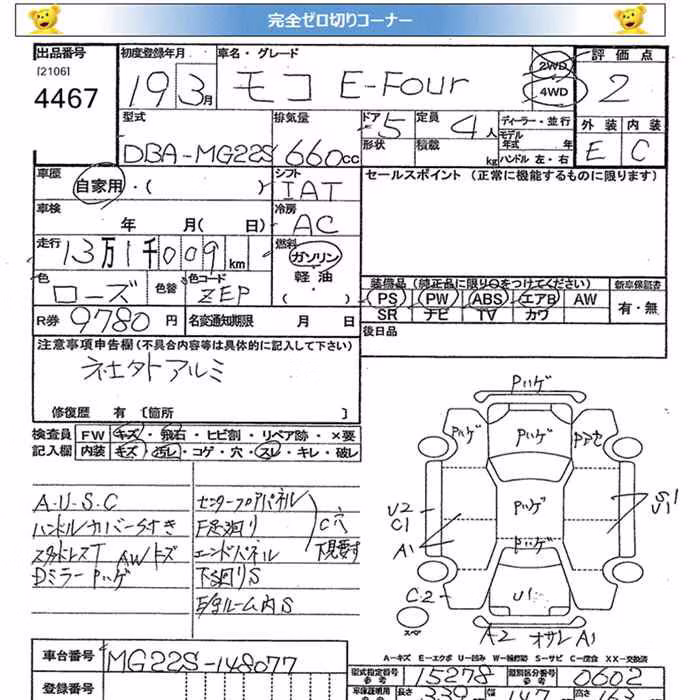 完全ゼロ切りコーナー
出品番号
[2106]
4467
初度登録年月
19 3月
車名・グレード
モコ E-Four
2WD
4WD
評価点
2
型式
DBA-MG22S
排気量
660cc
ドア
5
形状
定員
4人
積載
kg
ディーラー・並行
モデル
年式 年
ハンドル 左・右
外装 内装
E C
車歴
自家用・( )
シフト
IAT
セールスポイント (正常に機能するものに限ります)
車検
年 月( 日)
冷房
AC
走行
13万1千009km
燃料
ガソリン
軽油
・( )
色
ローズ
色替
色コード
ZEP
装備品(純正品に限り○をつけてください)
PS PW ABS エアB AW
SR ナビ TV カワ
新車保証書
有・無
R券 9780円
名変通知期限 月 日
後日品
注意事項申告欄(不具合内容等は具体的に記入して下さい)
社外アルミ
修復歴 有 [箇所 ]
検査員 FW キズ・飛石・ヒビ割・リペア跡・×要
記入欄 内装 キズ・汚レ・コゲ・穴・スレ・キレ・破レ
A・U・S・C
ハンドルカバー付き
スタッドレスT AWキズ
Dミラー Pハゲ
センターフロアパネル
F足廻り
エンドパネル
下廻りS
C穴
下見要す
Pハゲ
Pハゲ
Pハゲ
Pハゲ
Pハゲ
U2
C1
A1
S1
U1
C2
U1
スペア
A2 オサレA1
A-キズ E-エクボ U-凹み W-補修跡 S-サビ C-腐食 XX-交換済
車台番号
MG22S-148077
登録番号
型式指定番号
参考
15278
類別区分番号
参考
0602
車庫証明用
長さ
339
幅
147
高さ